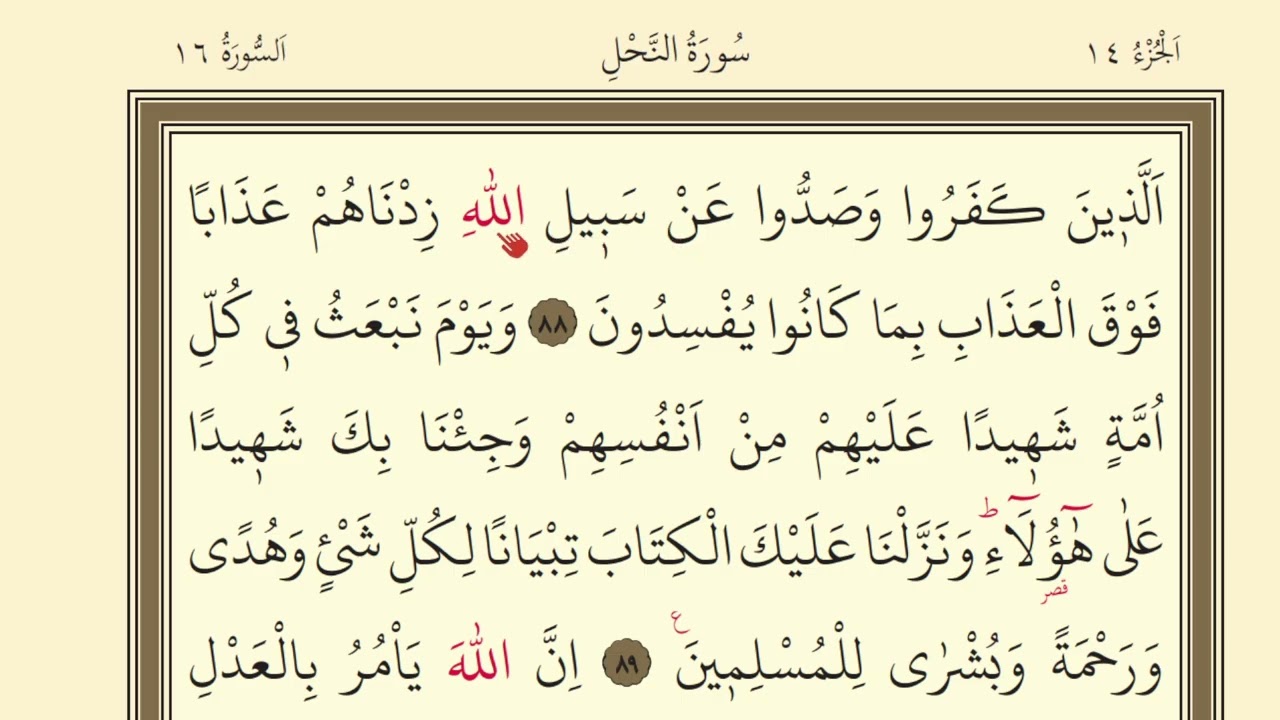 اَلْجُزْءُ ١٤
سُورَةُ النَّحْلِ
اَلسُّورَةُ ١٦
اَلَّذٖينَ كَفَرُوا وَصَدُّوا عَنْ سَبٖيلِ اللّٰهِ زِدْنَاهُمْ عَذَابًا
فَوْقَ الْعَذَابِ بِمَا كَانُوا يُفْسِدُونَ ٨٨ وَيَوْمَ نَبْعَثُ فٖى كُلِّ
اُمَّةٍ شَهٖيدًا عَلَيْهِمْ مِنْ اَنْفُسِهِمْ وَجِئْنَا بِكَ شَهٖيدًا
عَلٰى هٰٓؤُ۬لَٓاءِؕ وَنَزَّلْنَا عَلَيْكَ الْكِتَابَ تِبْيَانًا لِكُلِّ شَىْءٍ وَهُدًى
قصر
وَرَحْمَةً وَبُشْرٰى لِلْمُسْلِمٖينَ ع ٨٩ اِنَّ اللّٰهَ يَاْمُرُ بِالْعَدْلِ